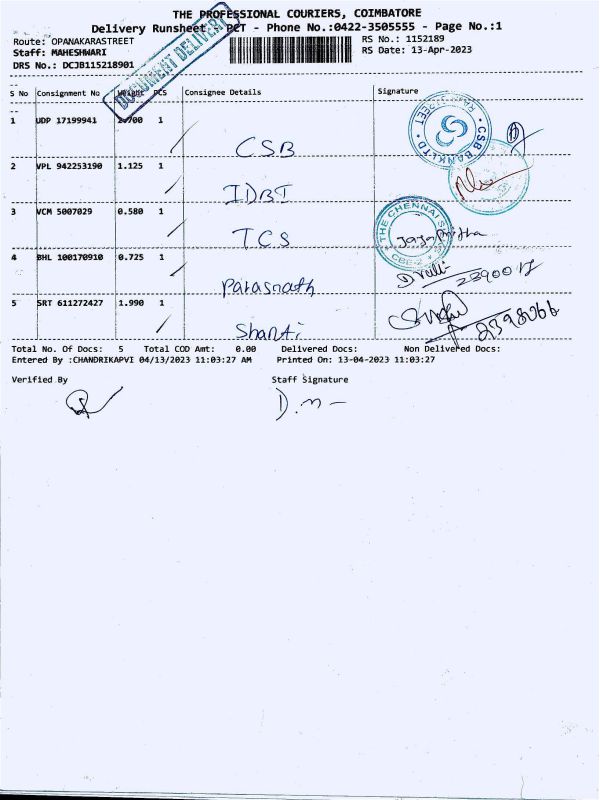 THE PROFESSIONAL COURIERS, COIMBATORE
Delivery Runsheet PCT - Phone No.:0422-3505555 - Page No.:1
Route: OPANAKARASTREET RS No.: 1152189
Staff: MAHESHWARI RS Date: 13-Apr-2023
DRS No.: DCJB115218901
DOCUMENT DELIVERY
S No Consignment No Weight PCS Consignee Details Signature
1 UDP 17199941 1
CSB
CSB BANK LTD
2 VPL 942253190 1.125 1
IDBI
3 VCM 5007029 0.580 1
TCS
THE CHENNAI
CBE-2
4 BHL 100170910 0.725 1
Parasnath
5 SRT 611272427 1.990 1
Shanti
2398066
Total No. Of Docs: 5 Total COD Amt: 0.00 Delivered Docs: Non Delivered Docs:
Entered By :CHANDRIKAPVI 04/13/2023 11:03:27 AM Printed On: 13-04-2023 11:03:27
Verified By Staff Signature